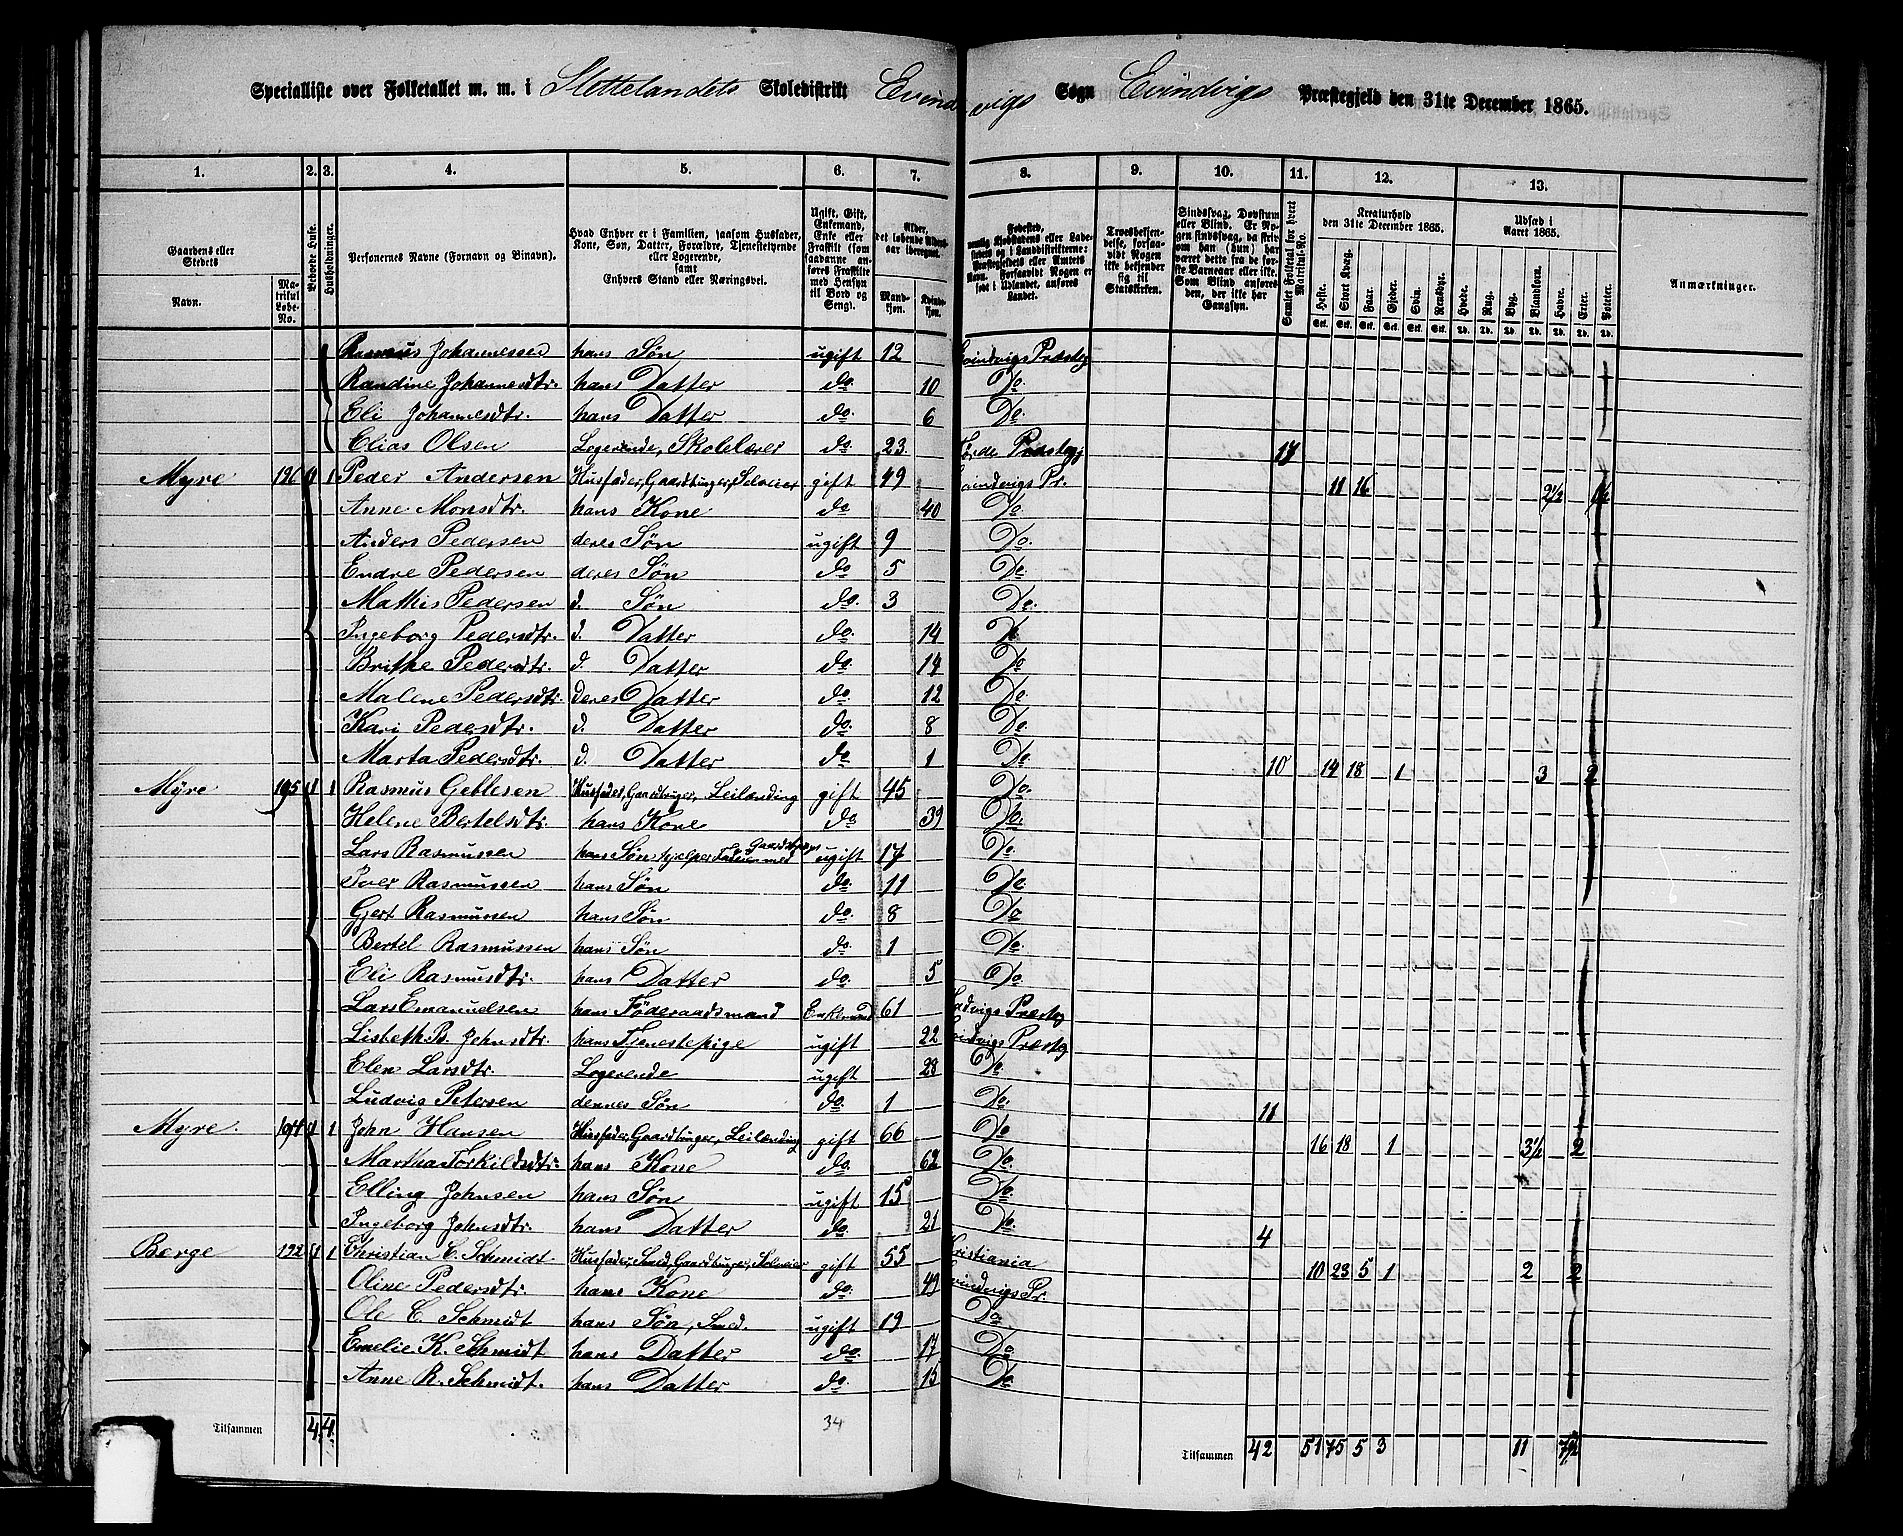 Specialliste over Folketallet m. m. i Slettelandets Skoledistrikt Evindvigs Sogn Evindvigs Præstegjeld den 31te December 1865.
1. 2. 3. 4. 5. 6. 7. 8. 9. 10. 11. 12. 13.
Gaardens eller Stedets Navn. Matrikul Løbe-No. Beboede Huse. Husholdninger. Personernes Navne (Fornavn og Binavn). Hvad Enhver er i Familien, saasom Husfader, Kone, Søn, Datter, Forældre, Tjenestetyende eller Logerende, samt Enhvers Stand eller Næringsvei. Ugift, Gift, Enkemand, Enke eller Fraskilt (som saadanne anføres Fraskilte med Hensyn til Bord og Seng). Alder, det løbende Alders-aar iberegnet. Mandkjøn. Kvindekjøn.
Troesbekjendelse, forsaavidt Nogen ikke bekjender sig til Statskirken. Samlet Folketal for hvert Matrikul-No. Kreaturhold den 31te December 1865. Heste. Stort Kvæg. Faar. Gjeder. Svin. Rensdyr. Udsæd i Aaret 1865. Hvede. Rug. Byg. Blandkorn. Havre. Erter. Poteter. Anmærkninger.
Rasmus Johannessen hans Søn ugift 12 Evindvigs Præsteg
Randine Johannesdtr. hans Datter do. 10 Do
Eli Johannesdtr. hans Datter do. 6 Do
Elias Olsen Logerende, Skolelærer do 23. Førde Præsteg 17
Myre 196 1 1 Peder Andersen Husfader, Gaardbruger, Selveier gift 49 Evindvigs Pr. 11 16 2½ 1½
Anne Monsdtr. hans Kone do 40 Do
Anders Pedersen deres Søn ugift 9 Do.
Endre Pedersen deres Søn do 5 Do
Mathis Pedersen d. Søn do. 3 Do.
Ingeborg Pedersdtr. d. Datter do. 14 Do
Brithe Pedersdtr. d. Datter do. 14 Do
Malene Pedersdtr. deres Datter do 12 Do
Kari Pedersdtr. d. Datter do. 8 Do
Marta Pedersdtr. d. Datter do 1 Do 10
Myre 195 1 1 Rasmus Geblesen Husfader, Gaardbruger, Leilænding gift 45 Do. 14 18 1 3 2
Helene Bertelsdtr. hans Kone do 39 Do.
Lars Rasmussen hans Søn hjelper Faderen med Gaardsbruget ugift 17 Do
Iver Rasmussen hans Søn do. 11 Do
Gjert Rasmussen hans Søn do. 8 Do
Bertel Rasmussen hans Søn do. 1 Do
Eli Rasmusdtr. hans Datter do. 5 Do
Lars Emanuelsen hans Føderaadsmand Enkemand 61 Ladvigs Præsteg
Lisbeth B. Johnsdtr. hans Tjenestepige ugift 22 Evindvigs Præsteg
Elen Larsdtr. Logerende ugift 28 Do
Ludvig Petersen dennes Søn do. 1 Do. 11
Myre. 194 1 1 John Hansen Husfader, Gaardbruger, Leilænding gift 66 Do 16 18 1 3½ 2
Martha Torkildsdtr. hans Kone do. 62 Do.
Elling Johnsen hans Søn ugift 15 Do.
Ingeborg Johnsdtr. hans Datter do 21 Do. 4
Berge 192 1 1 Christian C. Schmidt Husfader, Smed, Gaardbruger, Selveier gift 55 Kristiania 10 23 5 1 2 2
Oline Pedersdtr. hans Kone do. 49 Evindvigs Pr.
Ole C. Schmidt hans Søn, Smed. ugift 19 Do
Emelie K. Schmidt hans Datter do. 17 Do
Anne R. Schmidt. hans Datter do. 15 Do
Tilsammen 4 4 34 Tilsammen 42 51 75 5 3 11 7½